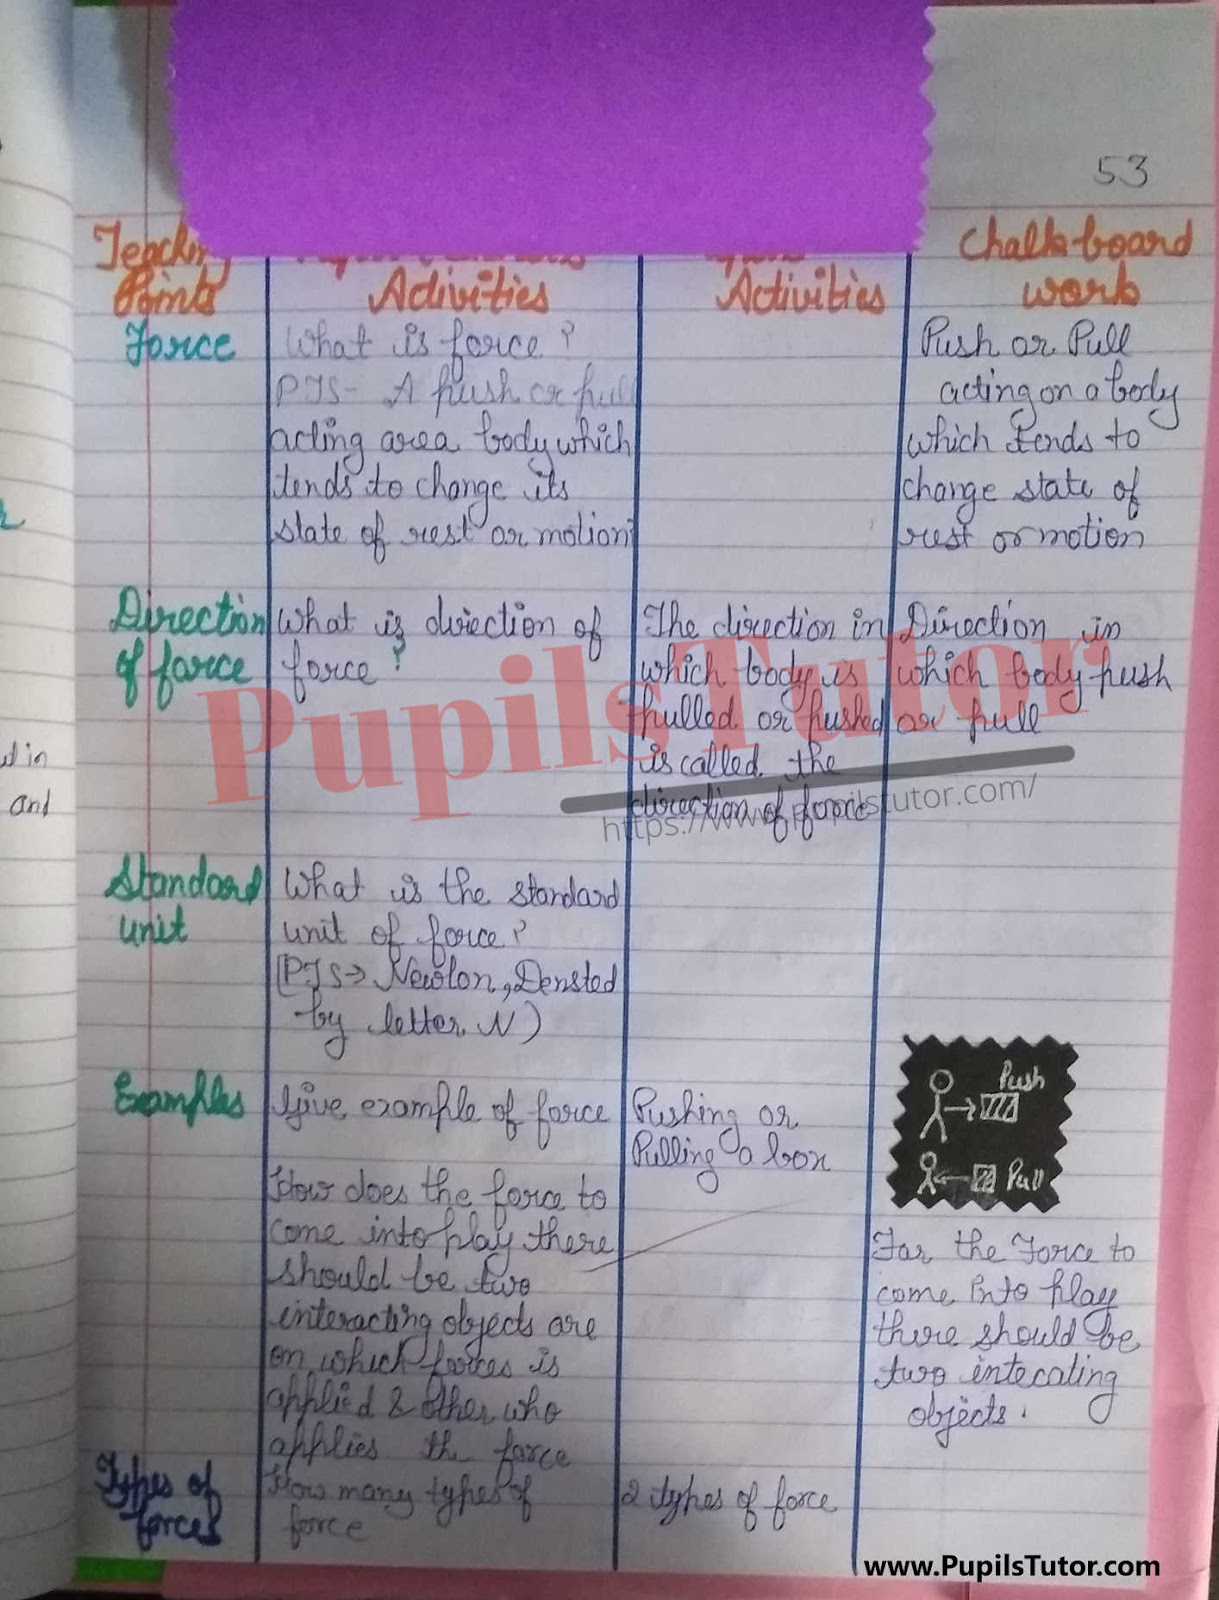 53
Teaching
Points
Activities
Activities
Chalk board
work
Force
What is force?
PTS- A push or pull
acting area body which
tends to change its
state of rest or motion
Push or Pull
acting on a body
which tends to
change state of
rest or motion
Direction
of force
What is direction of
force?
The direction in
which body is
pulled or pushed
is called the
direction of force
Direction in
which body push
or pull
Standard
unit
What is the standard
unit of force?
[PTS→ Newton, Densted
by letter N)
Examples
Give example of force
Pushing or
Pulling a box
Push
Pull
How does the force to
come into play there
should be two
interacting objects are
on which forces is
applied & other who
applies the force
Far the Force to
come into play
there should be
two intecating
objects.
Types of
forces
How many types of
force
2 types of force
d in
and
PupilsTutor
https://www.pupilstutor.com/
www.PupilsTutor.com